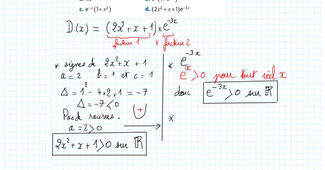 c. e⁻ˣ(1+x²) d. (2x²+x+1)e⁻³ˣ
D(x) = (2x² + x + 1) × e⁻³ˣ
facteur 1 facteur 2
* signes de 2x² + x + 1
a = 2 b = 1 et c = 1
Δ = 1² - 4×2×1 = -7
Δ = -7 < 0
Pas de racines.
a = 2 > 0
+
2x² + x + 1 > 0 sur ℝ
* e⁻³ˣ
eˣ > 0 pour tout réel x
donc e⁻³ˣ > 0 sur ℝ
*